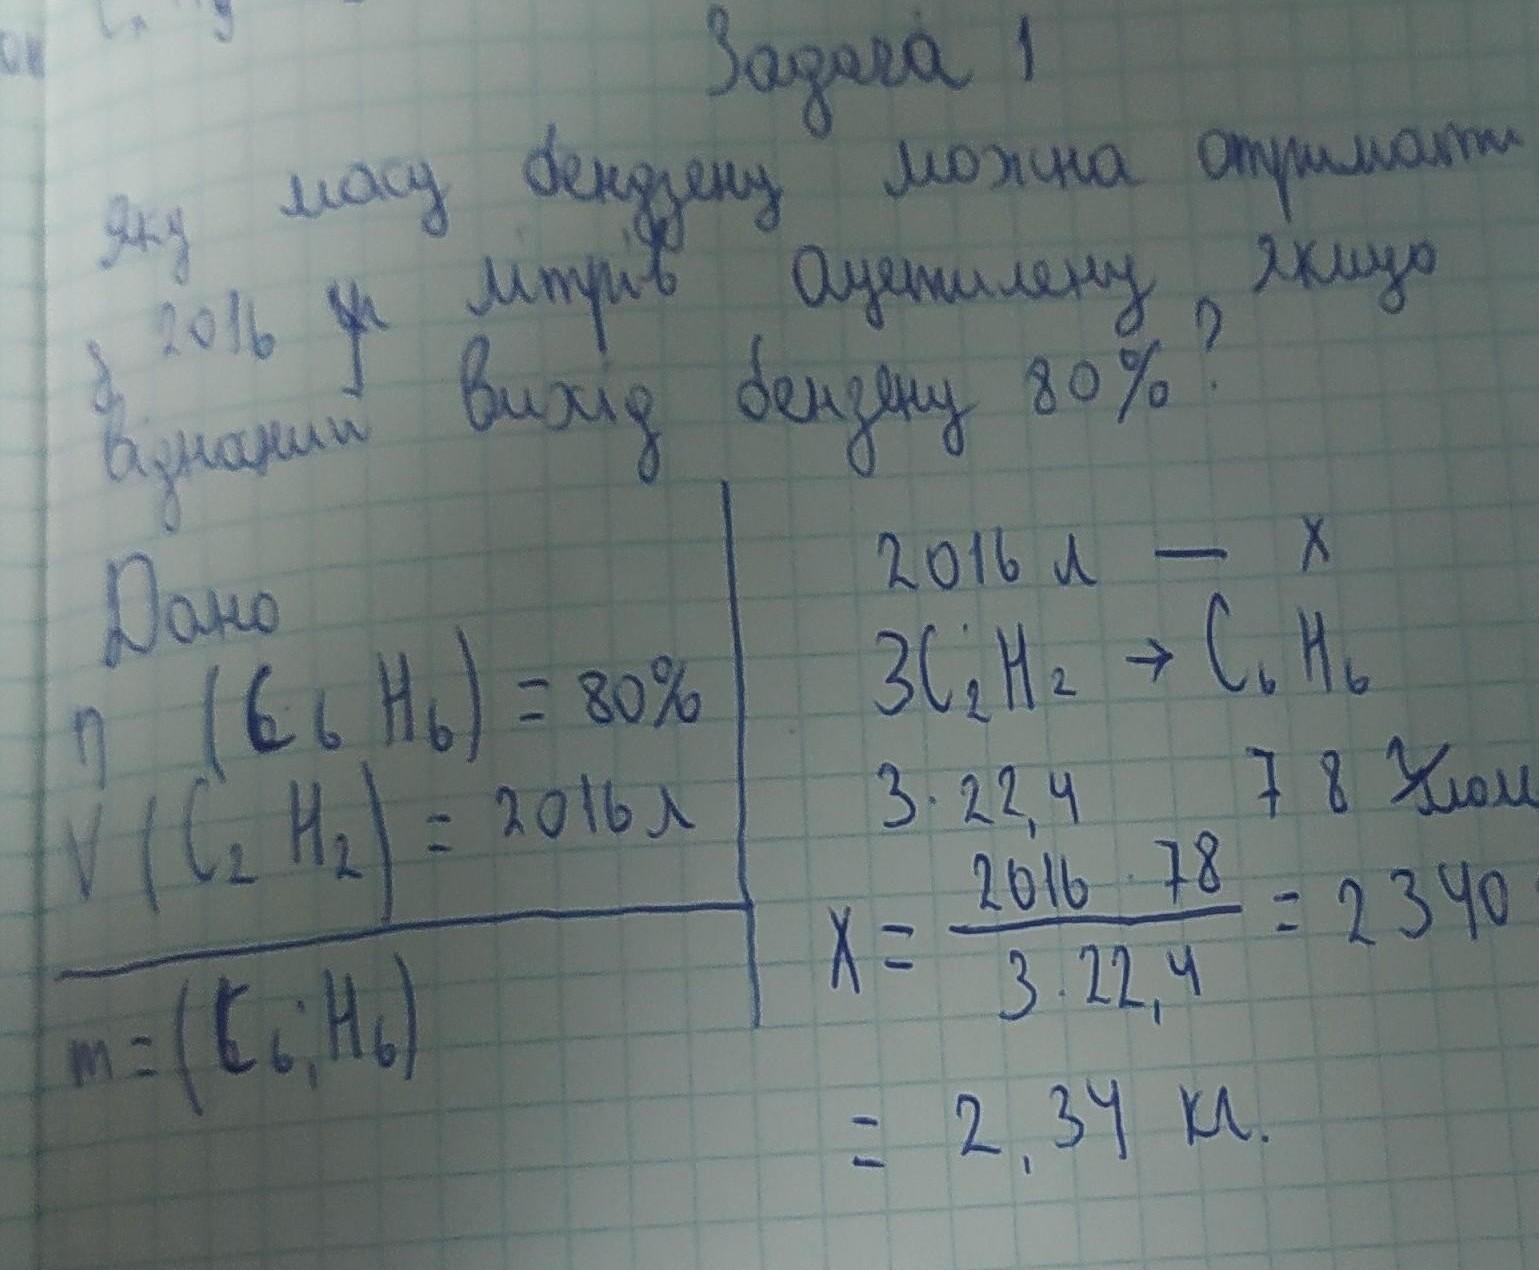 Задача 1
Яку масу бендзену можна отримати
з 2016 літрів ацетилену, якщо
відносний вихід бензену 80%?
Дано
η (C6H6) = 80%
V (C2H2) = 2016 л
m = (C6H6)
2016 л — x
3C2H2 → C6H6
3·22,4 78
X = 2016·78 / 3·22,4 = 2340
= 2,34 кг.